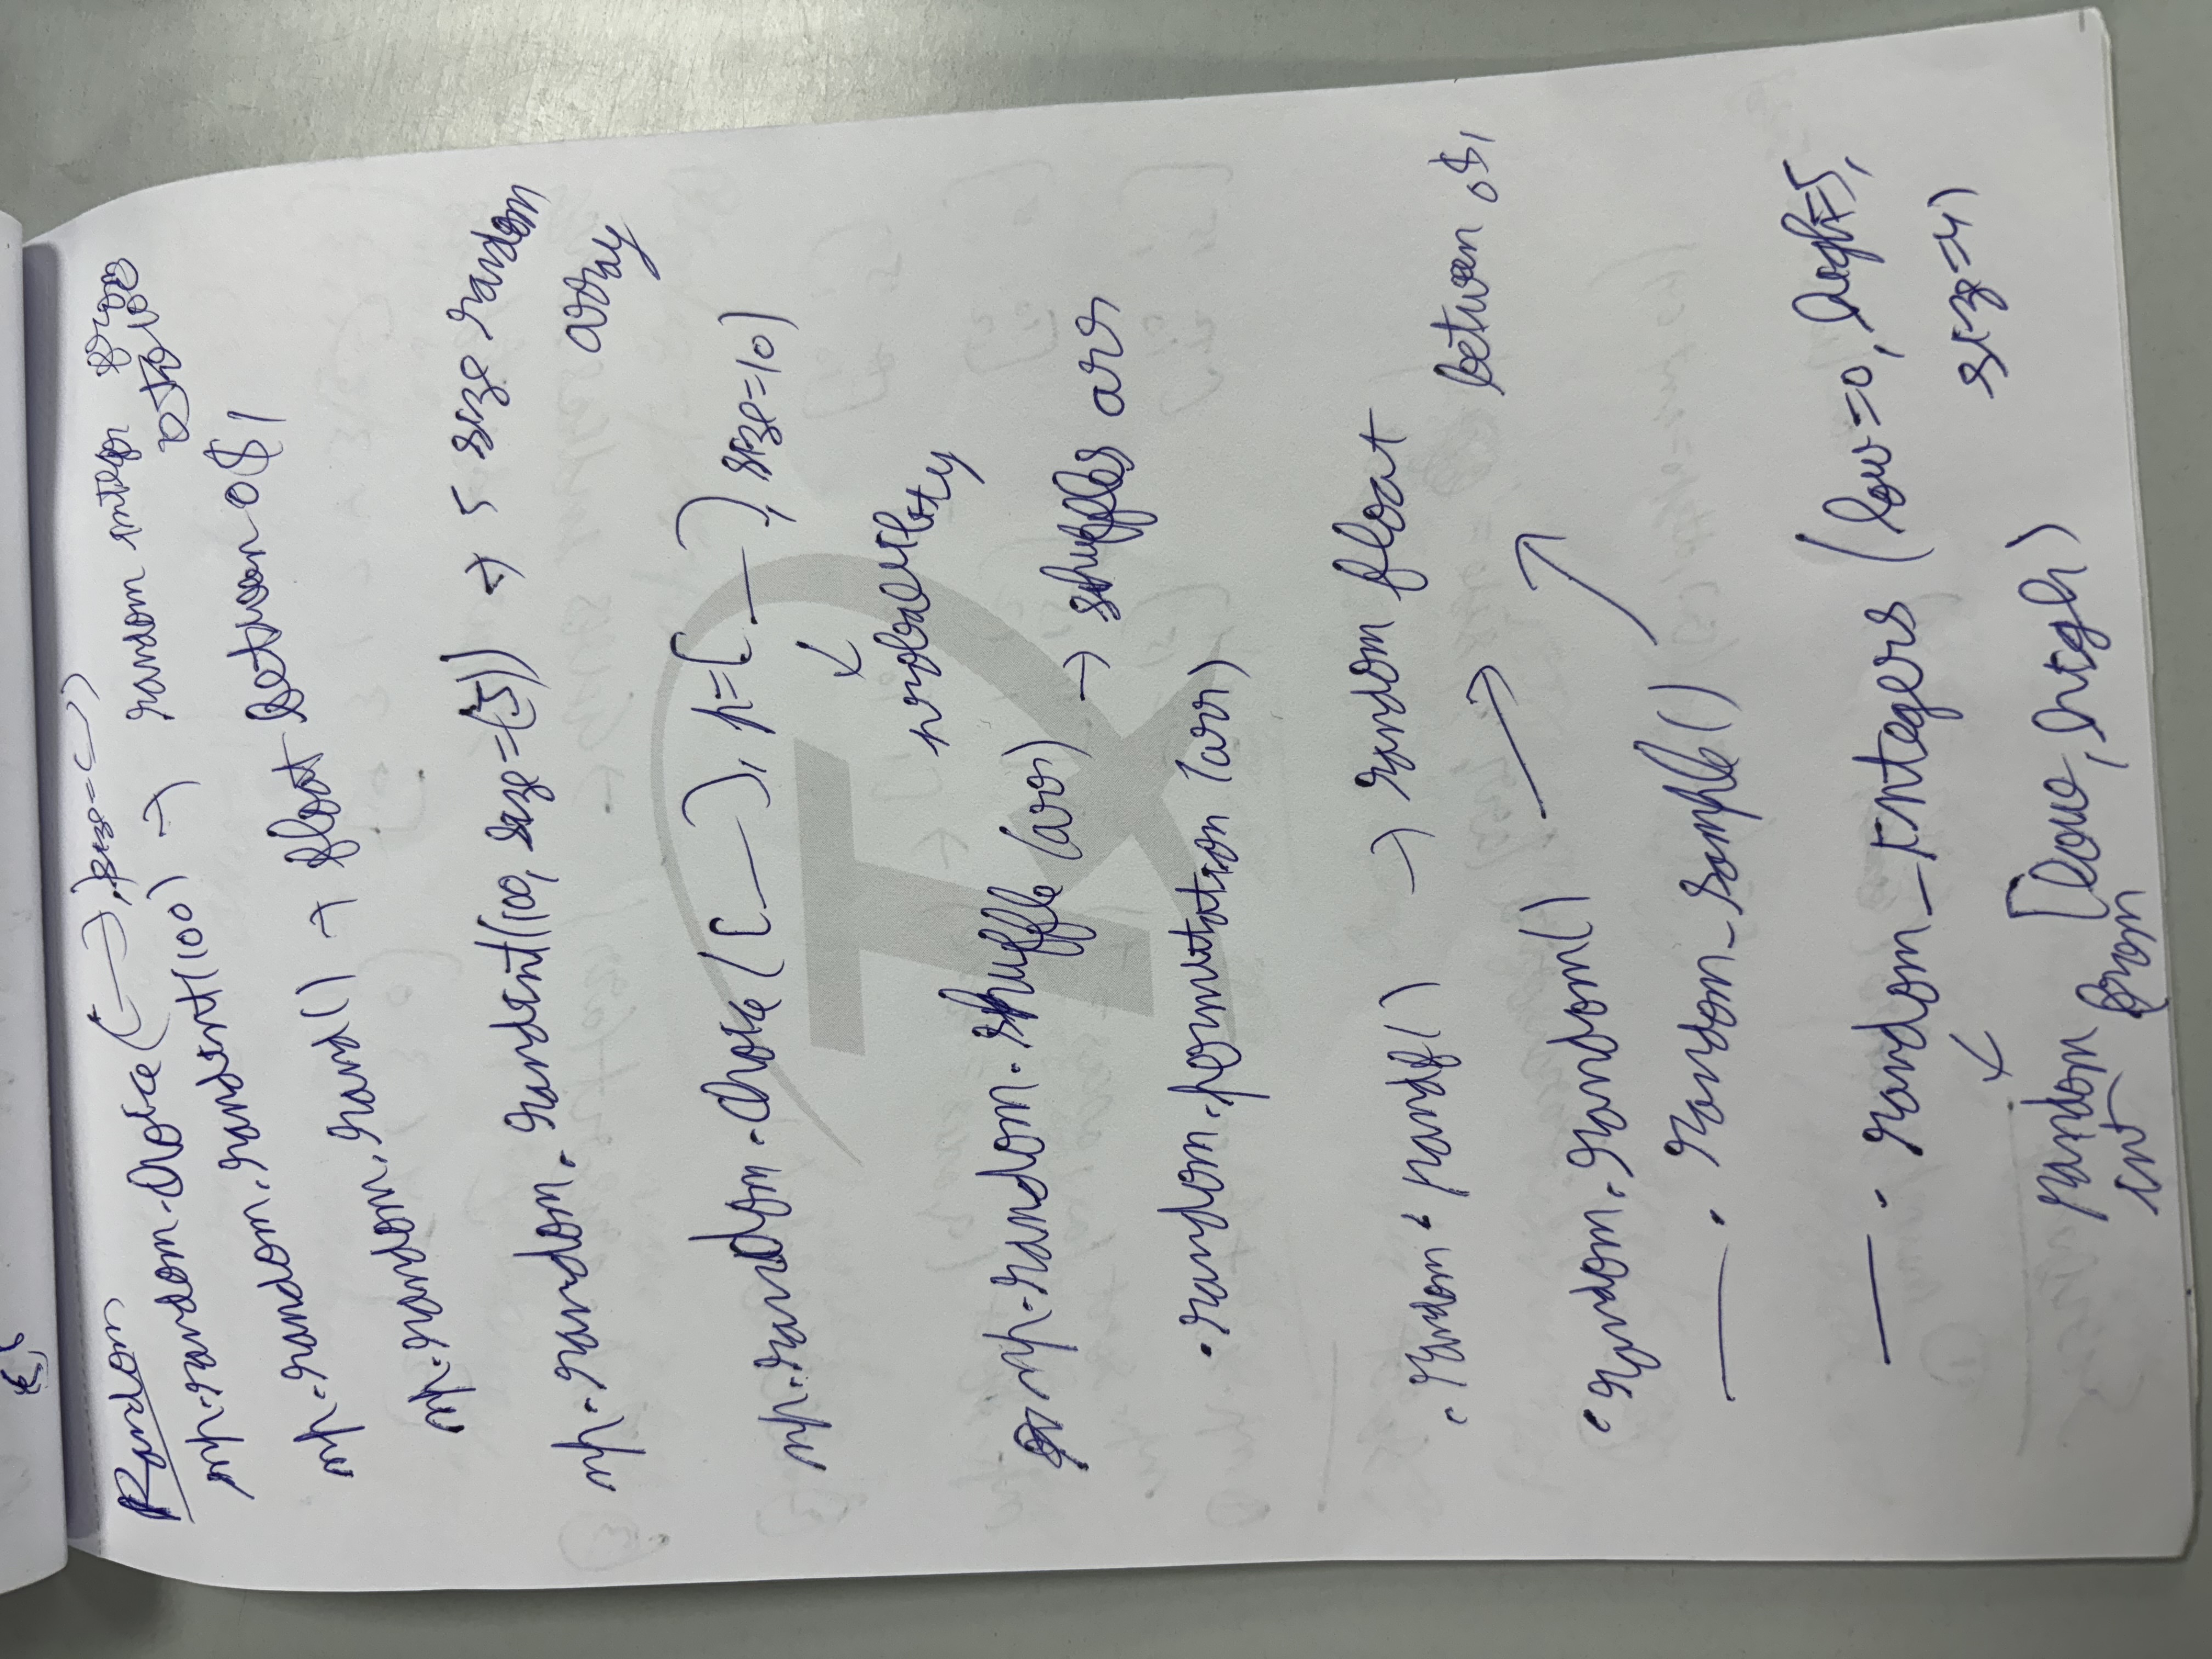 Random
np.random.choice([—], size=( ))
np.random.randint(100) → random integer from 0 to 100
np.random.rand() → float between 0 & 1
np.random.randint(100, size=(5)) → 5 size random
array
np.random.choice([—], p=[—], size=10)
↓
probability
np.random.shuffle(arr) → shuffles arr
.random.permutation(arr)
.random.randf() → random float
between 0 & 1
.random.random() →
— . random_sample()
— . random_integers(low=0, high=5,
size=4)
random [low, high)
int from
TX